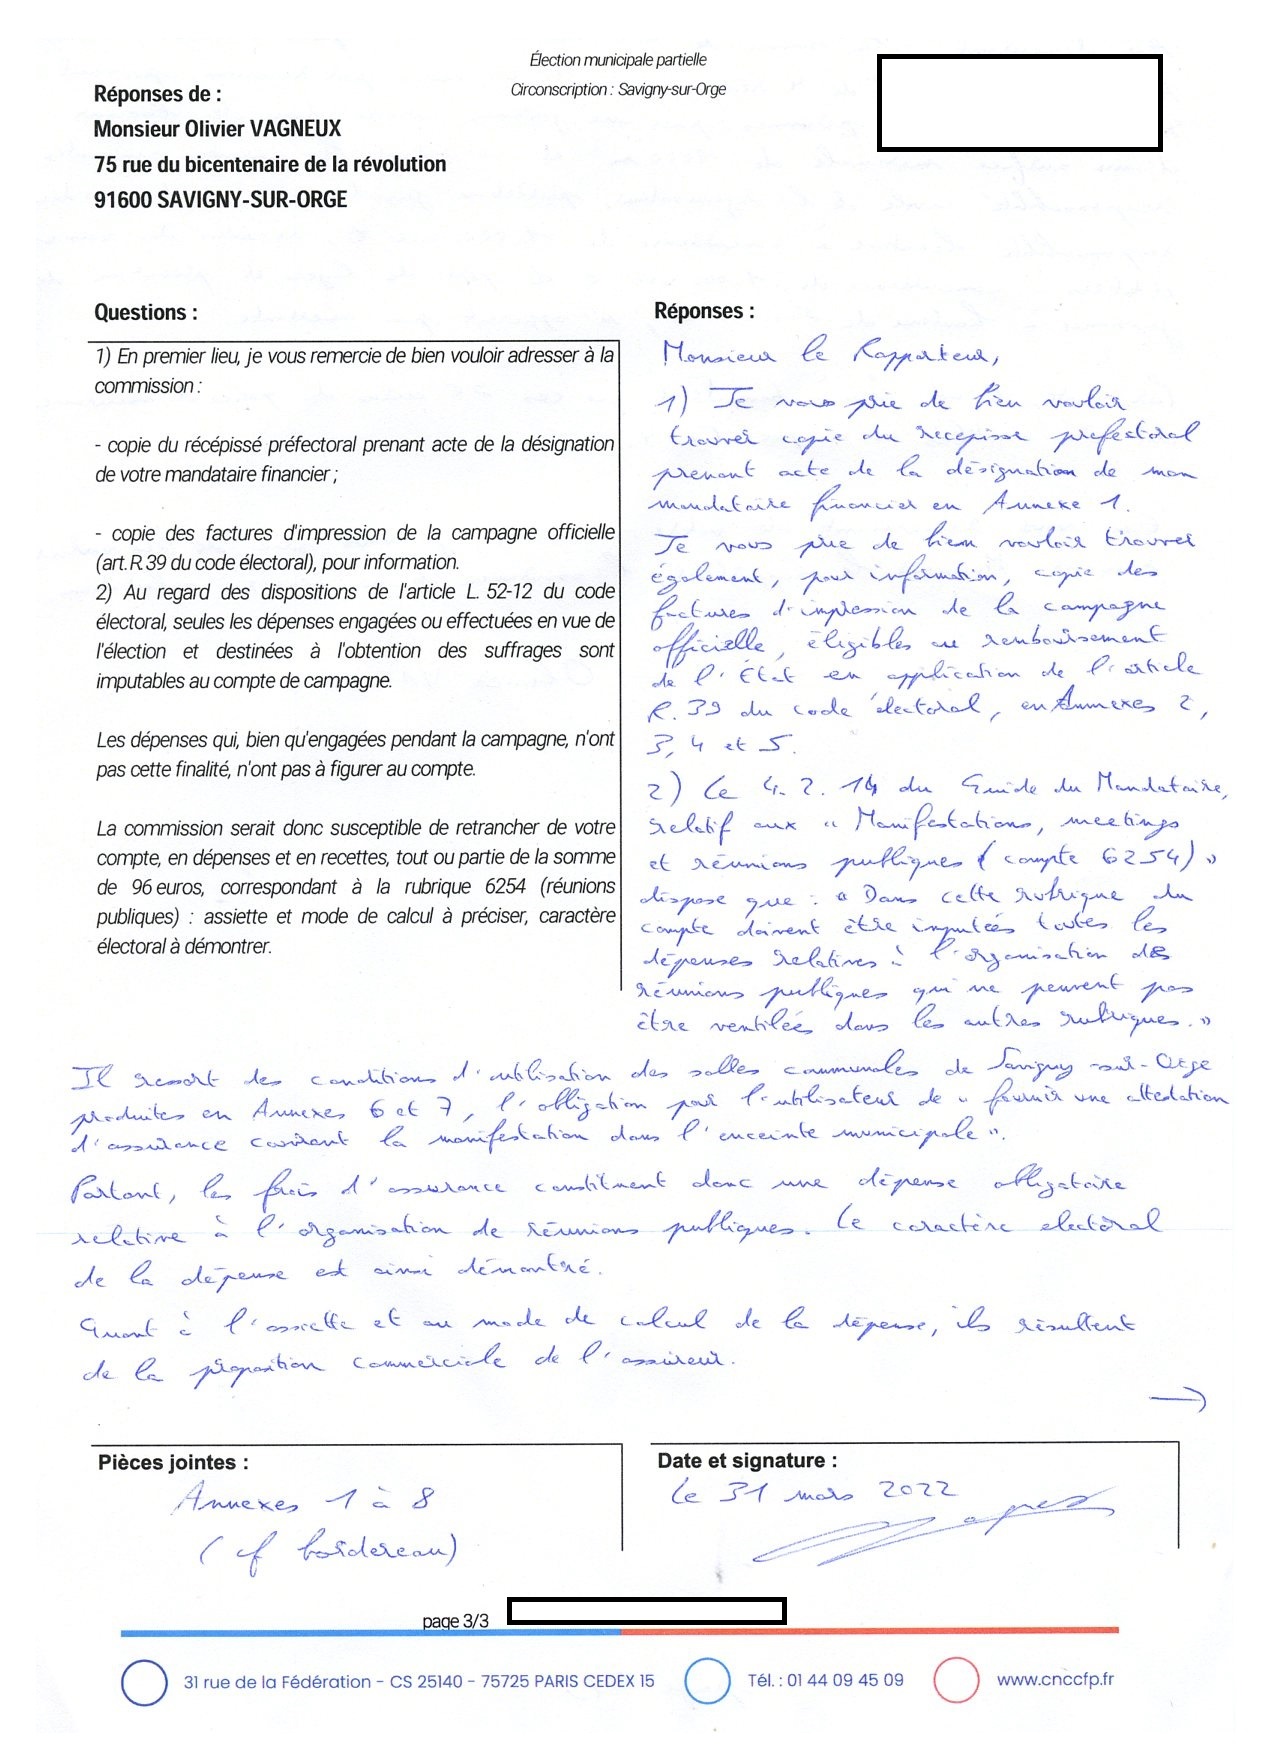 Élection municipale partielle
Circonscription : Savigny-sur-Orge
Réponses de :
Monsieur Olivier VAGNEUX
75 rue du bicentenaire de la révolution
91600 SAVIGNY-SUR-ORGE
Questions :
1) En premier lieu, je vous remercie de bien vouloir adresser à la
commission :
- copie du récépissé préfectoral prenant acte de la désignation
de votre mandataire financier ;
- copie des factures d'impression de la campagne officielle
(art. R.39 du code électoral), pour information.
2) Au regard des dispositions de l'article L. 52-12 du code
électoral, seules les dépenses engagées ou effectuées en vue de
l'élection et destinées à l'obtention des suffrages sont
imputables au compte de campagne.
Les dépenses qui, bien qu'engagées pendant la campagne, n'ont
pas cette finalité, n'ont pas à figurer au compte.
La commission serait donc susceptible de retrancher de votre
compte, en dépenses et en recettes, tout ou partie de la somme
de 96 euros, correspondant à la rubrique 6254 (réunions
publiques) : assiette et mode de calcul à préciser, caractère
électoral à démontrer.
Réponses :
Monsieur le Rapporteur,
1) Je vous prie de bien vouloir
trouver copie du recepisse prefectoral
prenant acte de la désignation de mon
mandataire financier en Annexe 1.
Je vous prie de bien vouloir trouver
également, pour information, copie des
factures d'impression de la campagne
officielle, éligibles au remboursement
de l'État en application de l'article
R.39 du code électoral, en Annexes 2,
3, 4 et 5.
2) Le 4.2.14 du Guide du Mandataire,
relatif aux « Manifestations, meetings
et réunions publiques (compte 6254) »
dispose que : « Dans cette rubrique du
compte doivent être imputées toutes les
dépenses relatives à l'organisation des
réunions publiques qui ne peuvent pas
être ventilées dans les autres rubriques. »
Il ressort des conditions d'utilisation des salles communales de Savigny-sur-Orge
produites en Annexes 6 et 7, l'obligation pour l'utilisateur de « fournir une attestation
d'assurance couvrant la manifestation dans l'enceinte municipale ».
Partant, les frais d'assurance constituent donc une dépense obligatoire
relative à l'organisation de réunions publiques. Le caractère electoral
de la dépense est ainsi démontré.
Quant à l'assiette et au mode de calcul de la dépense, ils résultent
de la proposition commerciale de l'assureur.
→
Pièces jointes :
Annexes 1 à 8
(cf bordereau)
Date et signature :
Le 31 mars 2022
page 3/3
31 rue de la Fédération - CS 25140 - 75725 PARIS CEDEX 15
Tél. : 01 44 09 45 09
www.cnccfp.fr